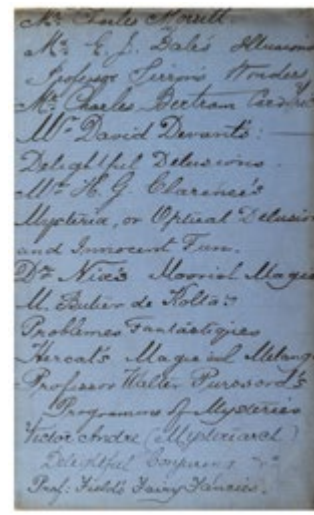 Mr. Charles Morritt.
Mr. E. J. Dale's Illusions
Professor Wonders
Mr. Charles Bertram
Mr. David Devant's :—
Delightful Delusions
Mr. H. G. Clarence's
Mysteria, or Optical Delusion
and Innocent Fun.
Dr. Nix's Moorish Magic
M. Buatier de Kolta's
Problemes Fantastiques
Hercat's Magical Melange
Professor Walter
Programme of Mysteries
Victor Andre (Mysteriarch)
Delightful
Prof: Field's Fairy Fancies.